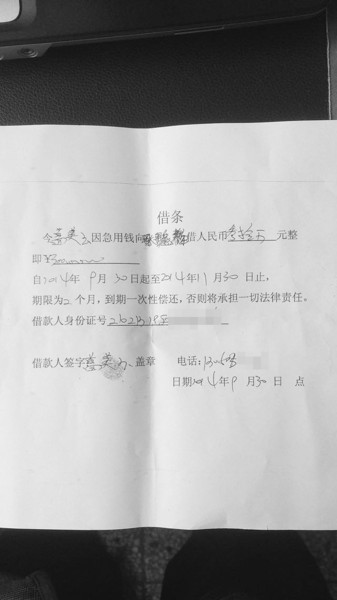 借条
今 因急用钱向 借人民币 元整
即¥300000
自2014年9月30日起至2014年11月30日止,
期限为2个月,到期一次性偿还,否则将承担一切法律责任。
借款人身份证号
借款人签字 、盖章 电话:
日期2014年9月30日 点